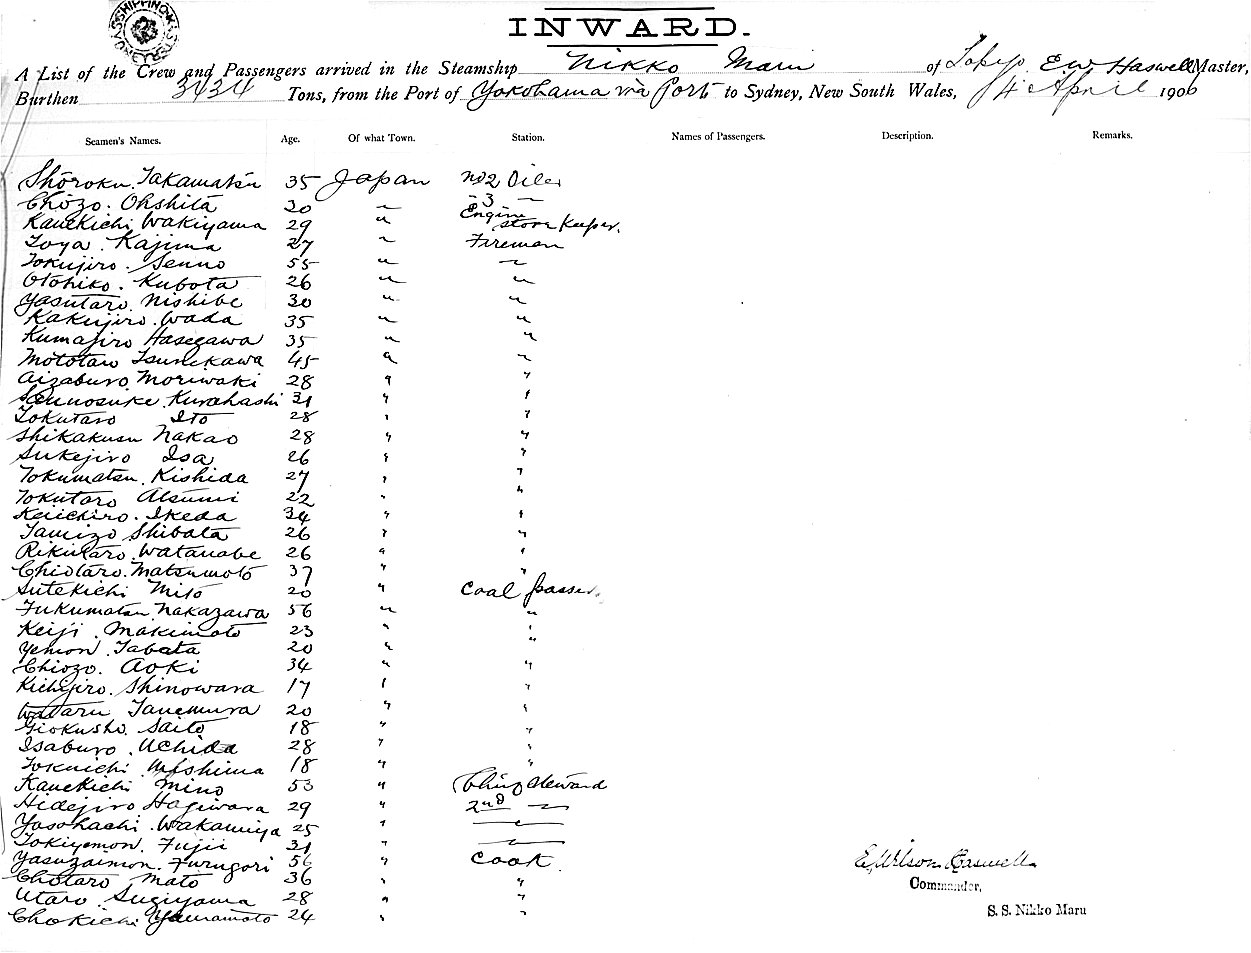 SHIPPING SYDNEY
INWARD.
A List of the Crew and Passengers arrived in the Steamship Nikko Maru of Tokyo E.W. Haswell Master,
Burthen 3434 Tons, from the Port of Yokohama via Ports to Sydney, New South Wales, 4 April 1906
Seamen's Names. Age. Of what Town. Station. Names of Passengers. Description. Remarks.
Shōroku Takamatsu 35 Japan No2 Oiler
Chōzo. Ohshita 30 " " 3 "
Kanekichi Wakiyama 29 " Engine store Keeper.
Toya. Kajima 27 " Fireman
Tokujiro. Senno 55 " "
Otohiko. Kubota 26 " "
Yasutaro. Nishibe 30 " "
Kakujiro. Wada 35 " "
Kumajiro Hasegawa 35 " "
Mototaro Tsunekawa 45 " "
Aizaburo Moriwaki 28 " "
Sennosuke Kurahashi 31 " "
Tokutaro Ito 28 " "
Shikakusu Nakao 28 " "
Sukejiro Isa 26 " "
Tokumatsu Kishida 27 " "
Tokutaro Atsumi 22 " "
Keiichiro. Ikeda 34 " "
Tamizo Shibata 26 " "
Rikutaro Watanabe 26 " "
Chiotaro. Matsumoto 37 " "
Sutekichi Mito 20 " Coal passer.
Fukumatsu Nakazawa 56 " "
Keiji. Makimoto 23 " "
Yemon. Tabata 20 " "
Chiozo. Aoki 34 " "
Kichijiro. Shinowara 17 " "
Wataru Tanemura 20 " "
Giokusho. Saito 18 " "
Isaburo. Uchida 28 " "
Tokuichi Mishima 18 " "
Kanekichi Mino 53 " Chief Steward
Hidejiro Hagiwara 29 " 2nd "
Yasohachi. Wakamiya 25 " "
Tokiyemon. Fujii 31 " "
Yasuzaimon. Furugori 56 " Cook.
Chotaro Mato 36 " "
Utaro Sugiyama 28 " "
Chokichi Yamamoto 24 " "
E. Wilson Haswell
Commander,
S. S. Nikko Maru